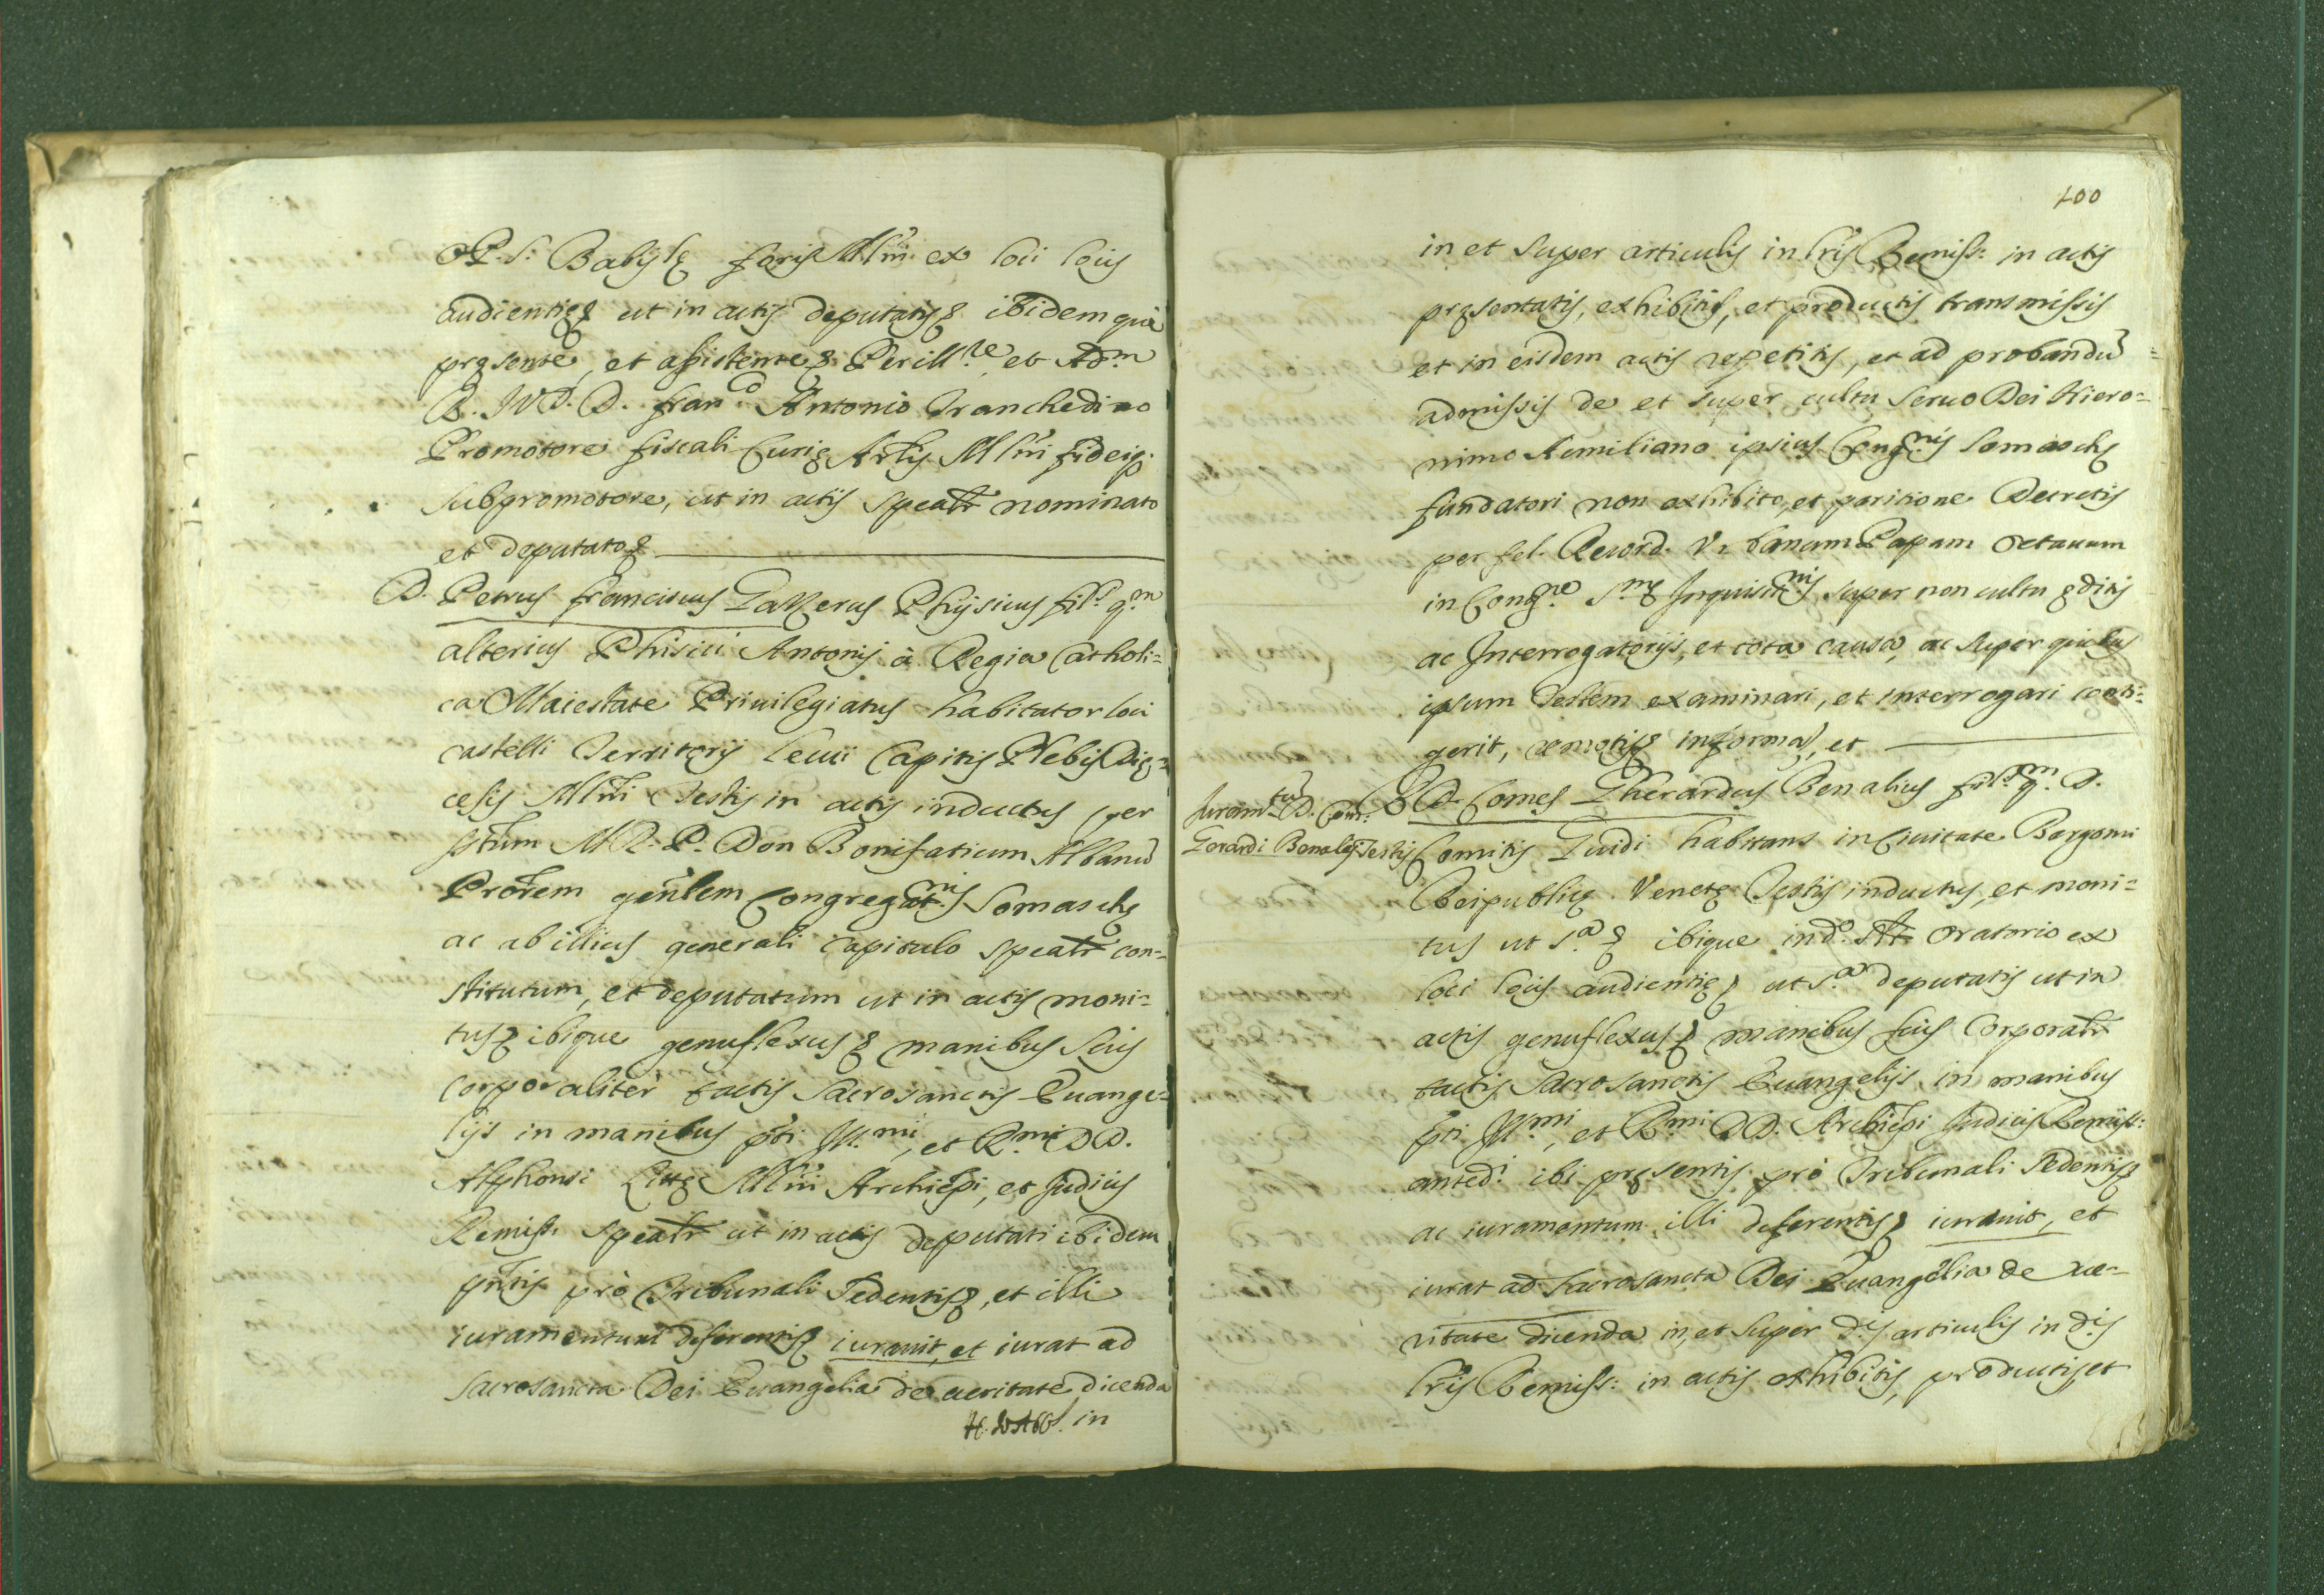 P. S. Babilę foris Mlni ex loci locis
audientię ut in actis deputatis ibidem què
pręsente, et assistente Perill.re et Adm
R. I.V.D. D. Fran.co Antonio Tranchedino
Promotore fiscali Curię Arlis Mlni fidei
subpromotore, ut in actis spealr nominato
et deputato
D. Petrus Franciscus Phijsicus fil.s q.m
alterius Phisici Antonij à Regia Catholi=
ca Maiestate Priuilegiatus habitator loci
castelli Territorij Leuci Capitis Plebis Dię=
cesis Mlni Testis in actis inductus per
ptum M. R. P. Don Bonifatium Albanū
Prorem genlem Congregat.nis Somaschę
ac ab illius generali capitulo spealr con=
stitutum, et deputatum ut in actis moni=
tus ibique genuflexus manibus suis
corporaliter tactis sacrosanctis Euange=
lijs in manibus pti Ill.mi, et R.mi D D.
Alphonsi Littę Mlni Archiepi, et Judicis
Remiss: spealr ut in actis deputati ibidem
pntis prò Tribunali sedentis, et illi
iuramentum deferentis iurauit, et iurat ad
sacrosancta Dei Euangelia de ueritate dicenda
in
100
in et super articulis in lris Remiss: in actis
pręsentatis, exhibitis, et productis transmissis
et in eisdem actis repetitis, et ad probandū
admissis de et super cultu seruo Dei Hiero=
nimo Aemiliano ipsius Cong.nis Somaschę
fundatori non exhibito, et paritione Decretis
per fel. Record. Vrbanum Papam Octauum
in Cong.ne S.mę Inquisit.nis super non cultu editis
ac Interrogatorijs, et tota causa, ac super quibus
ipsum Testem examinari, et interrogari conti=
gerit, remotis informa, et
Juram.tū D. Com.
Gerardi Benalij Testis
D. Comes Gherardus Benalius fil.s q.m D.
Comitis Guidi habitans in Ciuitate Bergomi
Reipublicę Venetę Testis inductus, et moni=
tus ut s.a ibique in d.o Oratorio ex
loci locis audientię ut s.a deputatis ut in
actis genuflexus manibus suis Corporalr
tactis sacrosanctis Euangelijs in manibus
pti Ill.mi, et R.mi D D. Archiepi Judicis Remiss:
anted.i ibi pręsentis prò Tribunali sedentis
ac iuramentum illi deferentis iurauit, et
iurat ad sacrosancta Dei Euangelia de ue=
ritate dicenda in, et super d.is articulis in d.is
lris Remiss: in actis exhibitis, productis, et